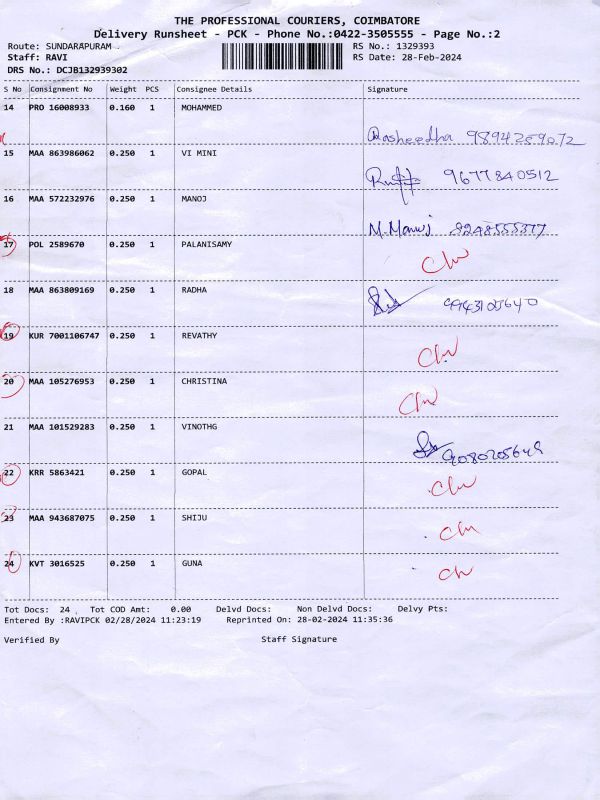 THE PROFESSIONAL COURIERS, COIMBATORE
Delivery Runsheet - PCK - Phone No.:0422-3505555 - Page No.:2
Route: SUNDARAPURAM . RS No.: 1329393
Staff: RAVI RS Date: 28-Feb-2024
DRS No.: DCJB132939302
S No Consignment No Weight PCS Consignee Details Signature
14 PRO 16008933 0.160 1 MOHAMMED
Rasheedha 9894259072
15 MAA 863986062 0.250 1 VI MINI
9677840512
16 MAA 572232976 0.250 1 MANOJ
M. Manoj
17 POL 2589670 0.250 1 PALANISAMY
18 MAA 863809169 0.250 1 RADHA
19 KUR 7001106747 0.250 1 REVATHY
20 MAA 105276953 0.250 1 CHRISTINA
21 MAA 101529283 0.250 1 VINOTHG
9080205649
22 KRR 5863421 0.250 1 GOPAL
23 MAA 943687075 0.250 1 SHIJU
24 KVT 3016525 0.250 1 GUNA
Tot Docs: 24 Tot COD Amt: 0.00 Delvd Docs: Non Delvd Docs: Delvy Pts:
Entered By :RAVIPCK 02/28/2024 11:23:19 Reprinted On: 28-02-2024 11:35:36
Verified By Staff Signature